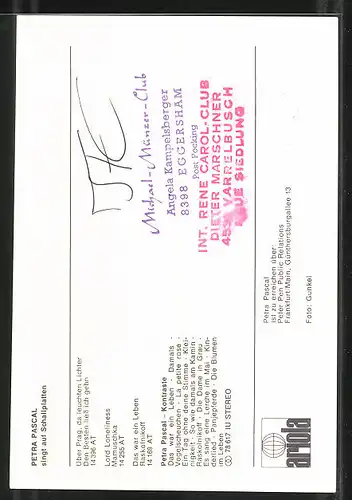 PETRA PASCAL
singt auf Schallplatten
Über Prag, da leuchten Lichter
Den Besten ließ ich gehn
14 396 AT
Lord Loneliness
Mamuschka
14 255 AT
Das war ein Leben
Raskolnikoff
14 168 AT
Petra Pascal - Kontraste
Das war ein Leben · Damals ·
Vogelscheuchen · La petite rose ·
Ein Tag ohne deine Stimme · Klei-
nigkeit · So wie damals am Kamin ·
Raskolnikoff · Die Dame in Grau ·
Es sang eine Lerche im Mai · Kin-
derlied · Panjepferde · Die Blumen
im Leben
78 617 IU STEREO
ariola
Michael-Münzer-Club
Angela Kampelsberger
8398 EGGERSHAM
Post Pocking
INT. RENE CAROL-CLUB
DIETER MARSCHNER
VARRELBUSCH
NEUE SIEDLUNG
Petra Pascal
ist zu erreichen über:
Peter Pan Public Relations
Frankfurt/Main, Günthersburgallee 13
Foto: Gunkel